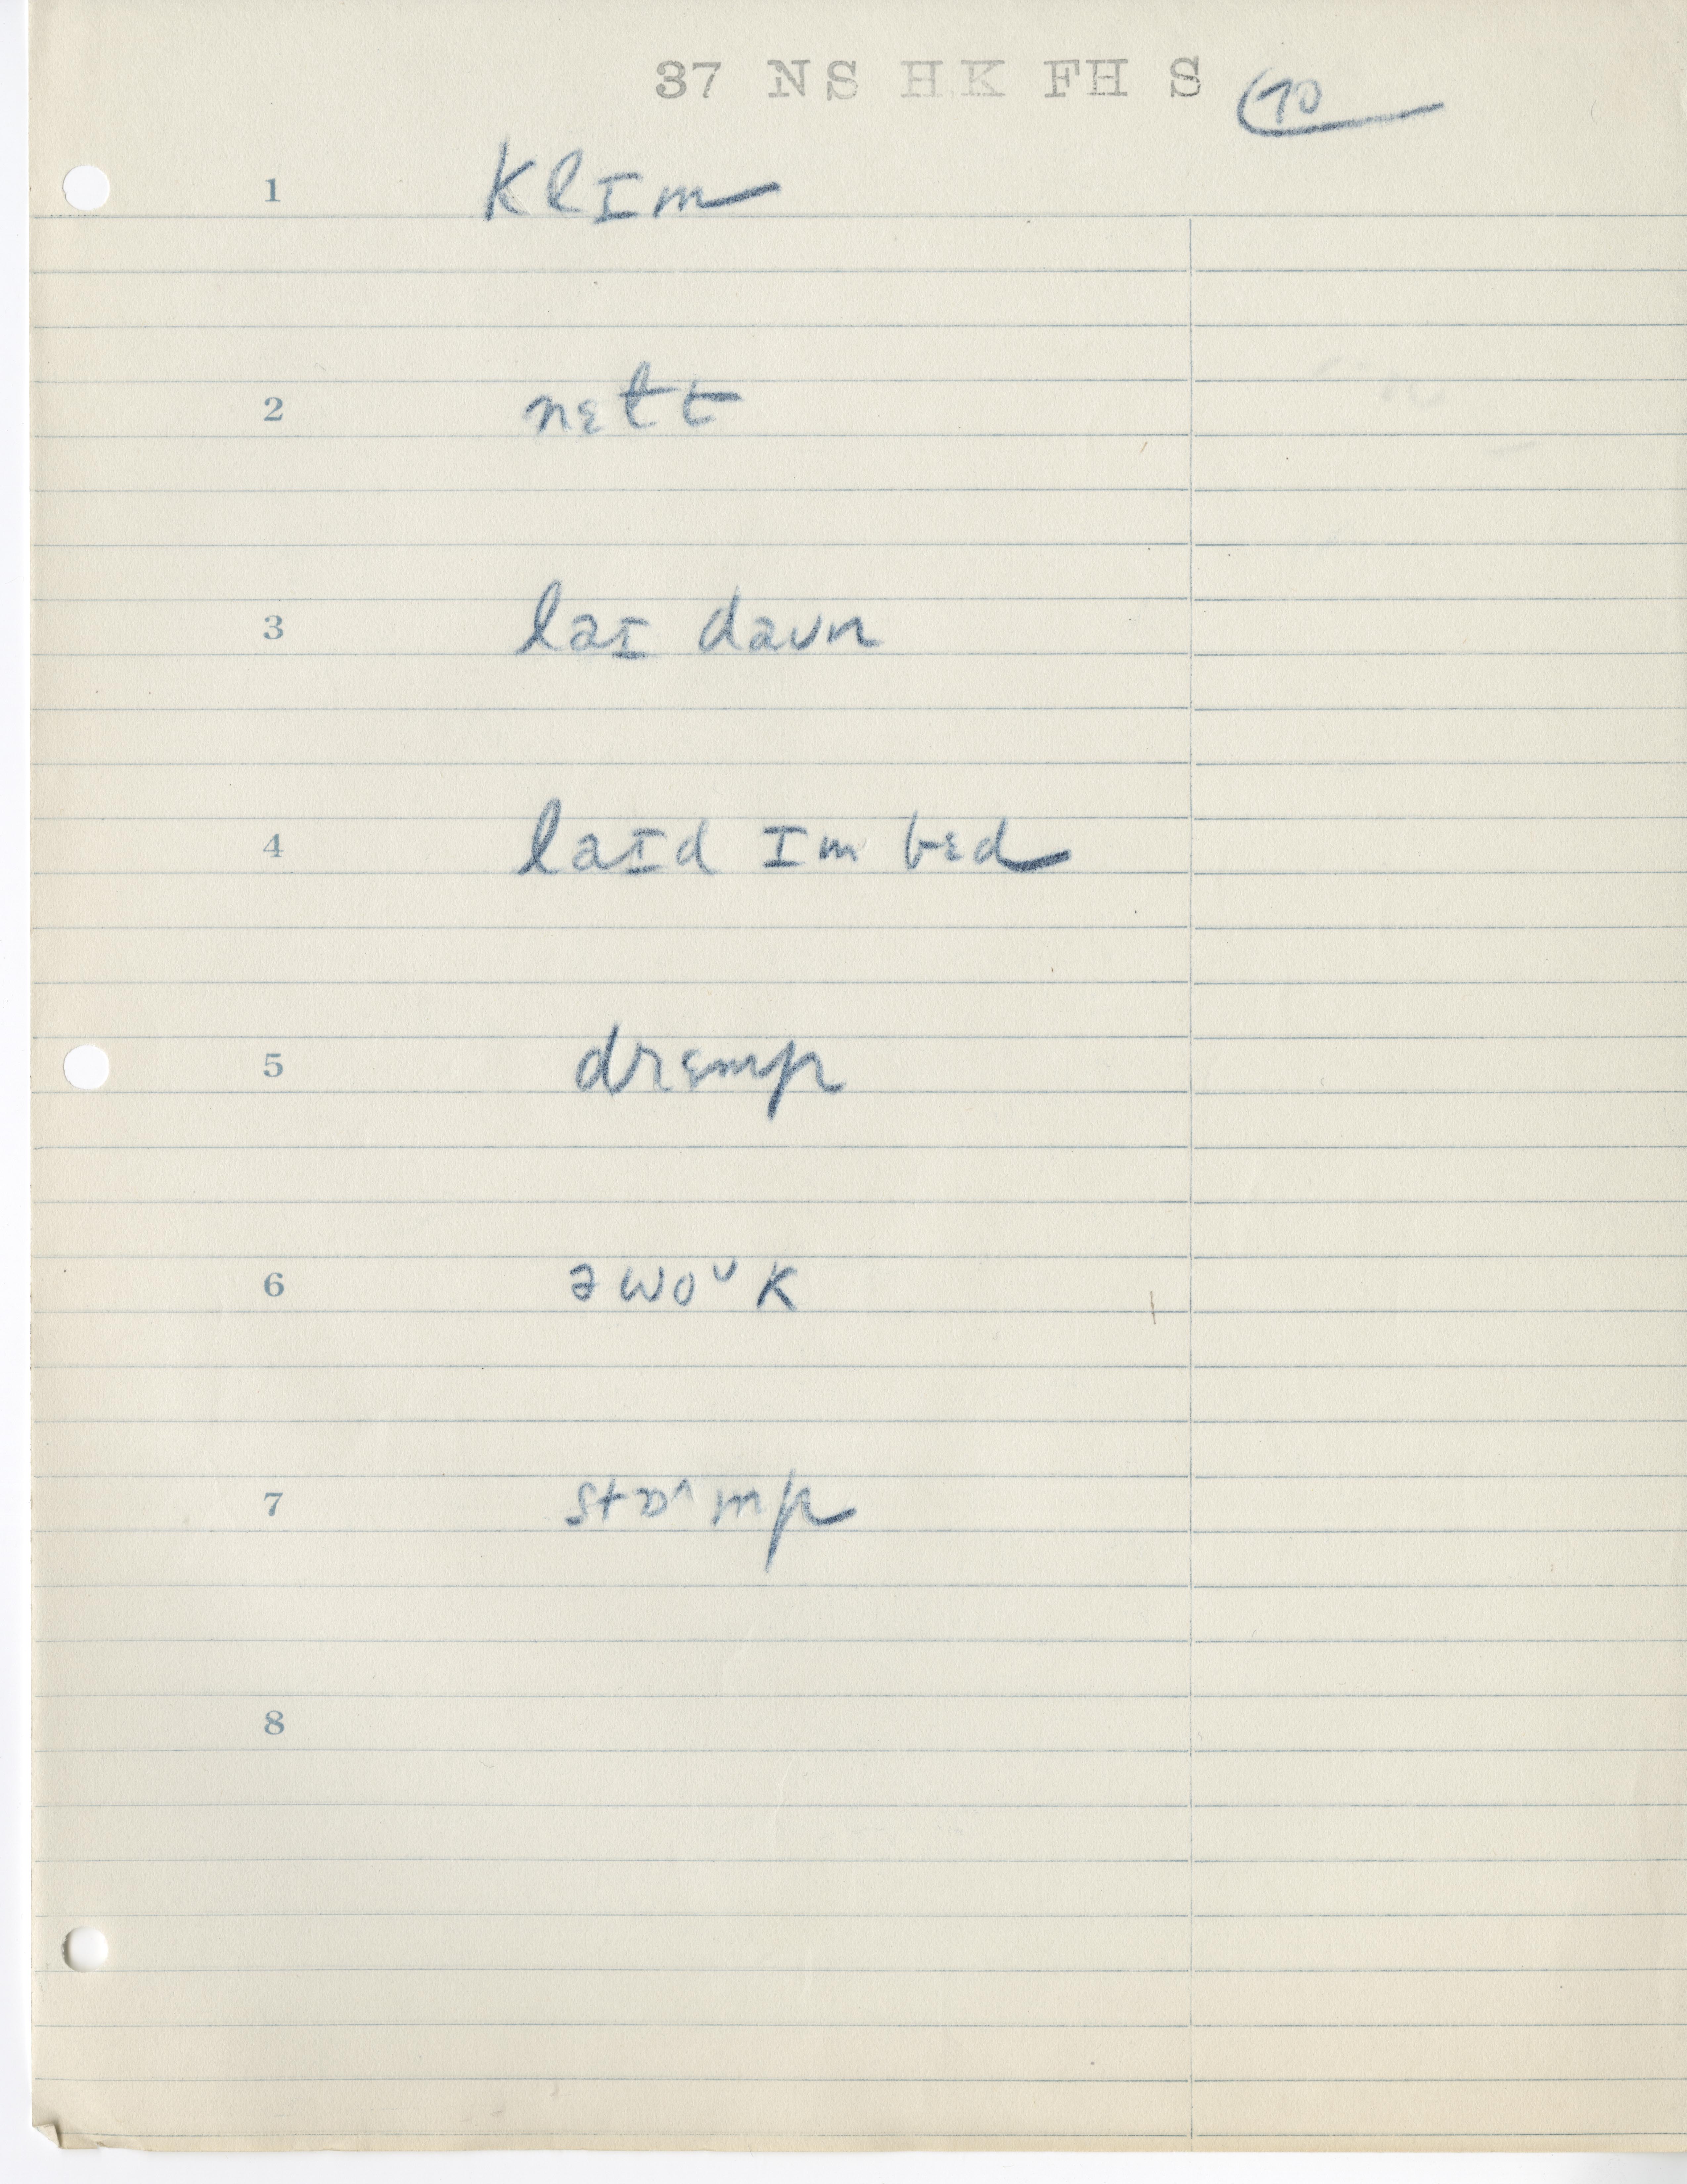 37 NS HK FH S 70
1 klɪm
2 nɛlt
3 laɪ daʊn
4 laɪd ɪm bɛd
5 drɛmp
6 əwoᶷk
7 stɒˆmp
8